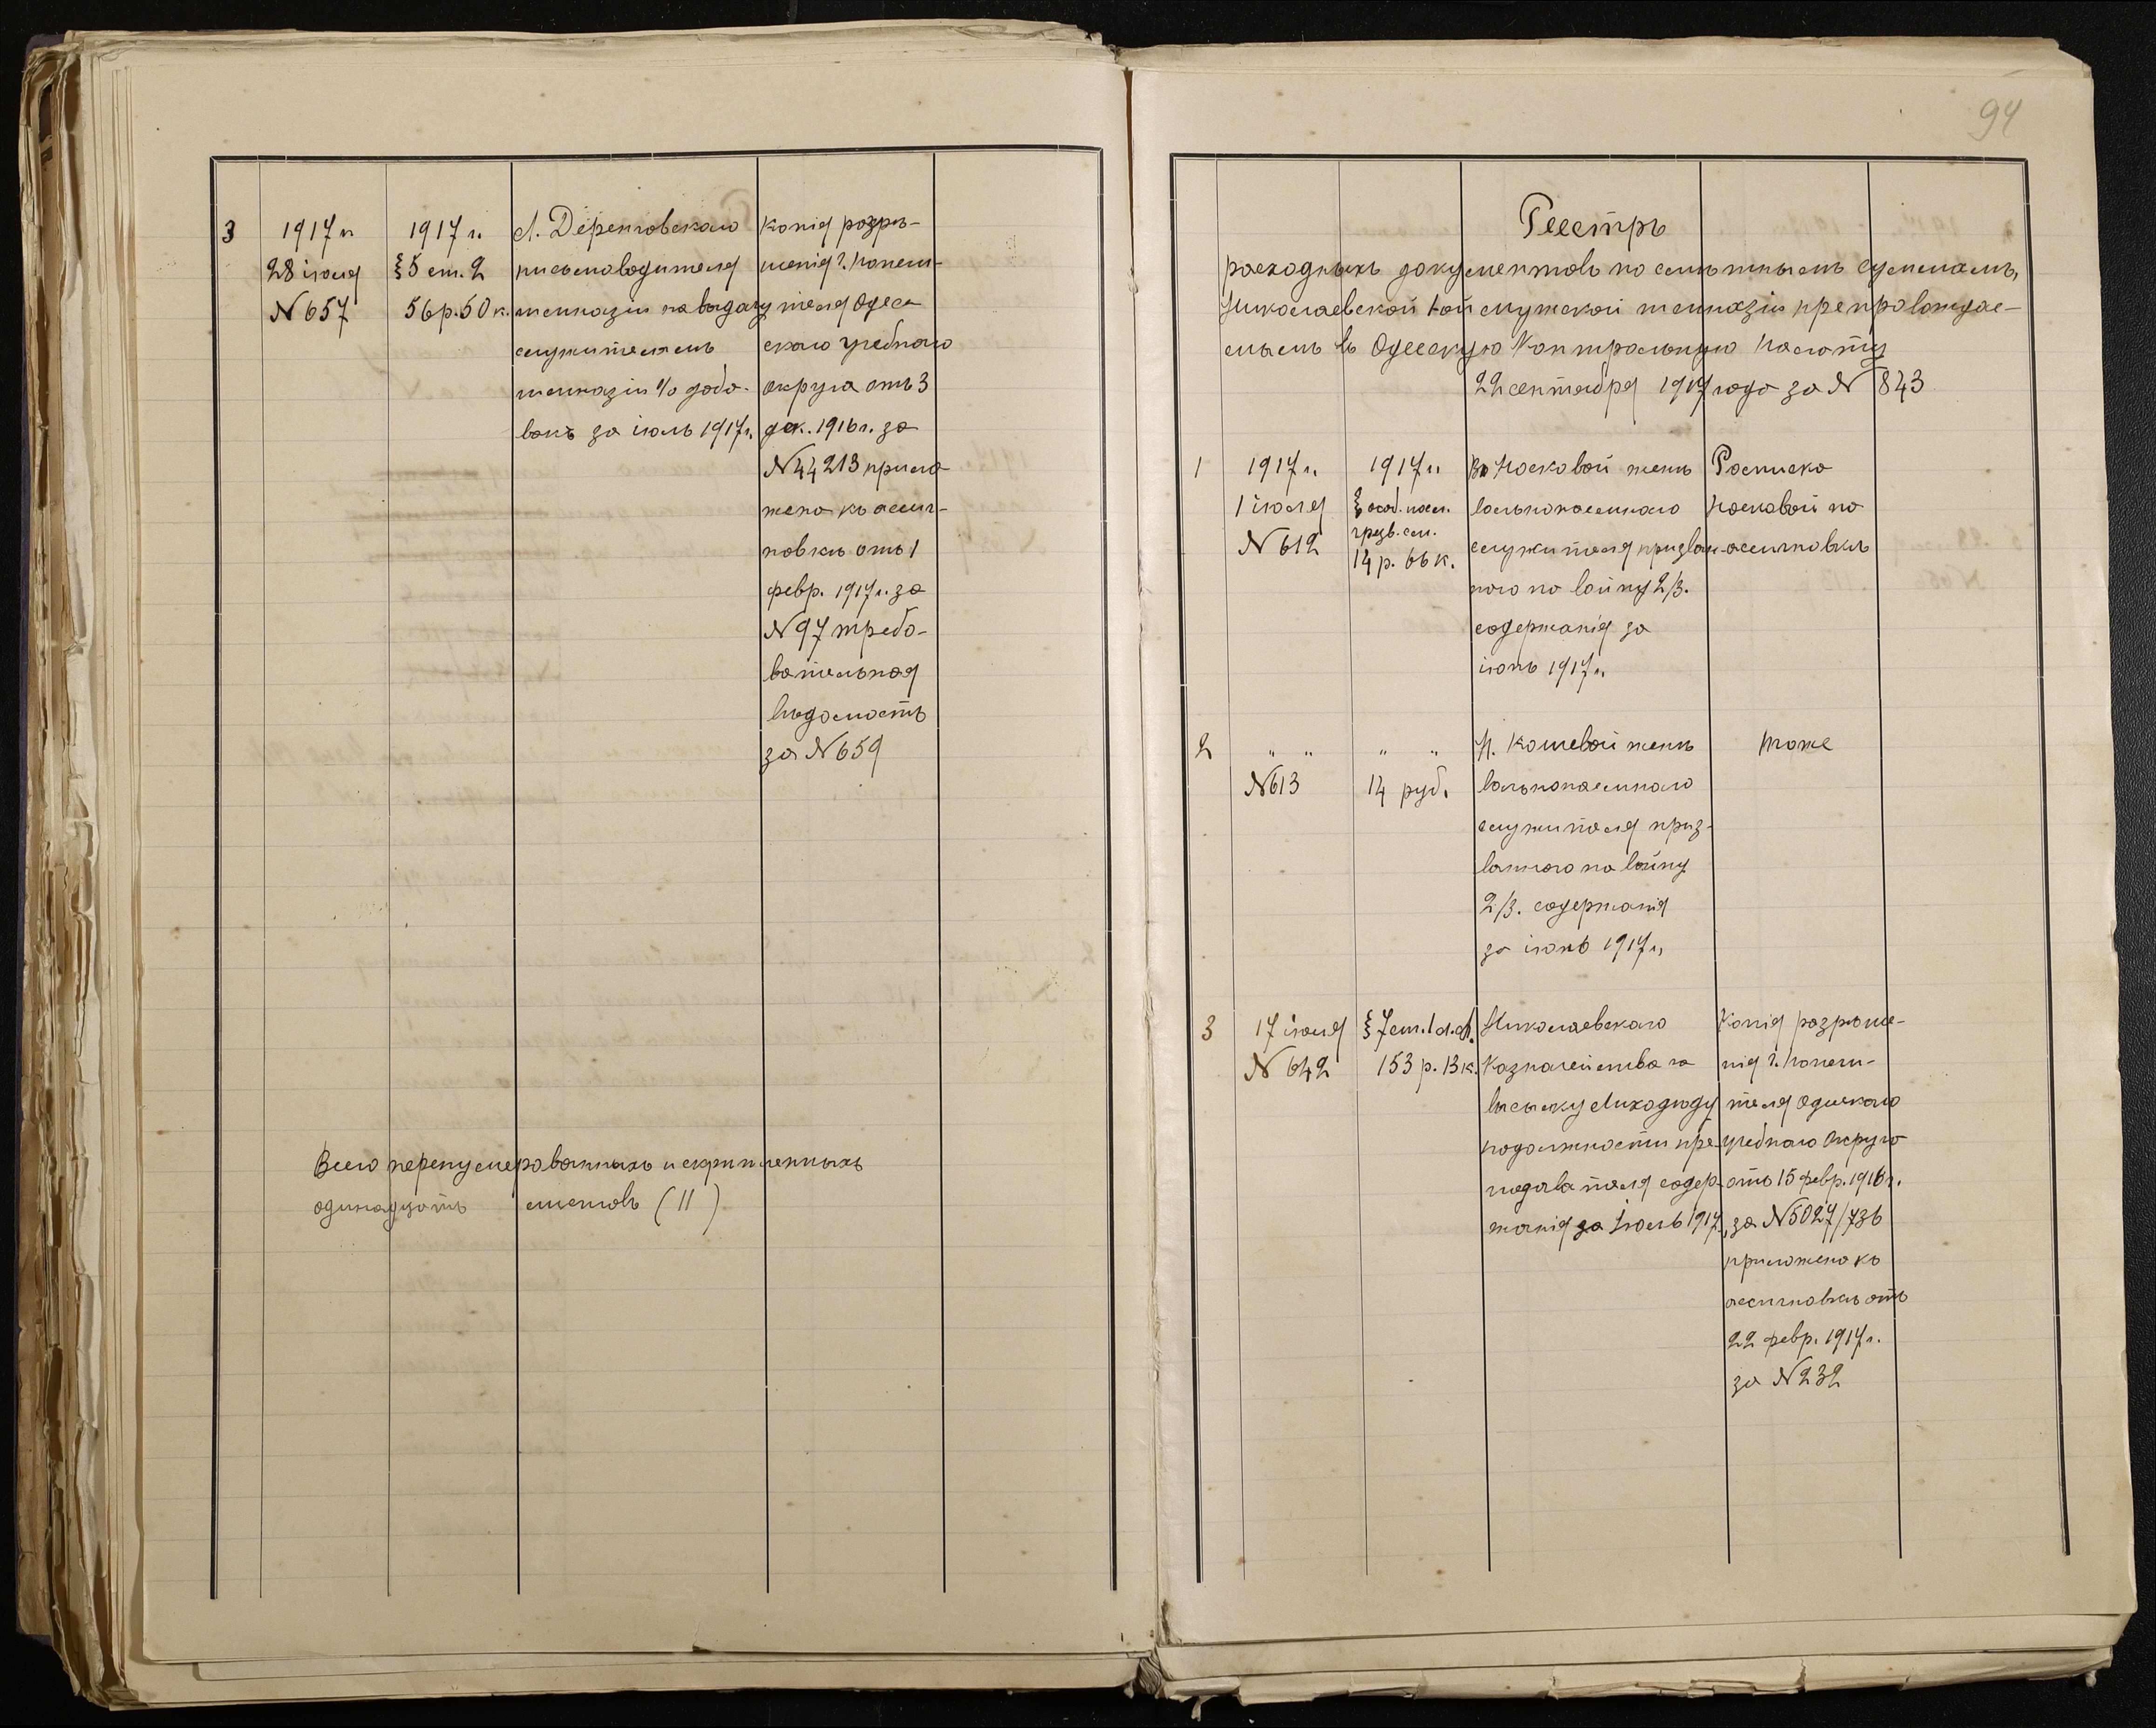 3
1917 г.
28 іюля
№ 657
1917 г.
§ 5 ст. 2
56 р. 50 к.
Л. Деренговскаго
письмоводителя
гимназіи на выдачу
служителямъ
гимназіи % доба-
вокъ за іюль 1917 г.
Копія разрѣ-
шенія г. Попечи-
теля Одес-
скаго Учебнаго
Округа отъ 3
дек. 1916 г. за
№ 44213 прило-
жена къ ассиг-
новкѣ отъ 1
февр. 1917 г. за
№ 97 требо-
вательная
вѣдомость
за № 659
Всего перенумерованныхъ и скрѣпленныхъ
одинадцать листовъ (11)
94
Реестръ
расходныхъ документовъ по смѣтнымъ суммамъ,
Николаевской 1-ой мужской гимназіи препровождае-
мымъ въ Одесскую Контрольную Палату
22 сентября 1917 года за № 843
1
1917 г.
1 іюля
№ 612
1917 г.
§ особ. пос.
чрезв. см.
14 р. 66 к.
Носковой женѣ
вольнонаемнаго
служителя призван-
наго на войну 2/3.
содержанія за
іюнь 1917 г.
Росписка
Носковой на
ассигновкѣ
2
" "
№ 613
" "
14 руб.
Н. Кошевой женѣ
вольнонаемнаго
служителя приз-
ваннаго на войну
2/3. содержанія
за іюнь 1917 г.
тоже
3
17 іюля
№ 642
§ 7 ст. 1 л. А.
153 р. 13 к.
Николаевскаго
Казначейства на
высылку Лиходѣду
по должности пре-
подавателя содер-
жанія за Іюль 1917.
Копія разрѣше-
нія г. Попечи-
теля Одесскаго
Учебнаго Округа
отъ 15 февр. 1916 г.
за № 5027/736
приложена къ
ассигновкѣ отъ
22 февр. 1917 г.
за № 232